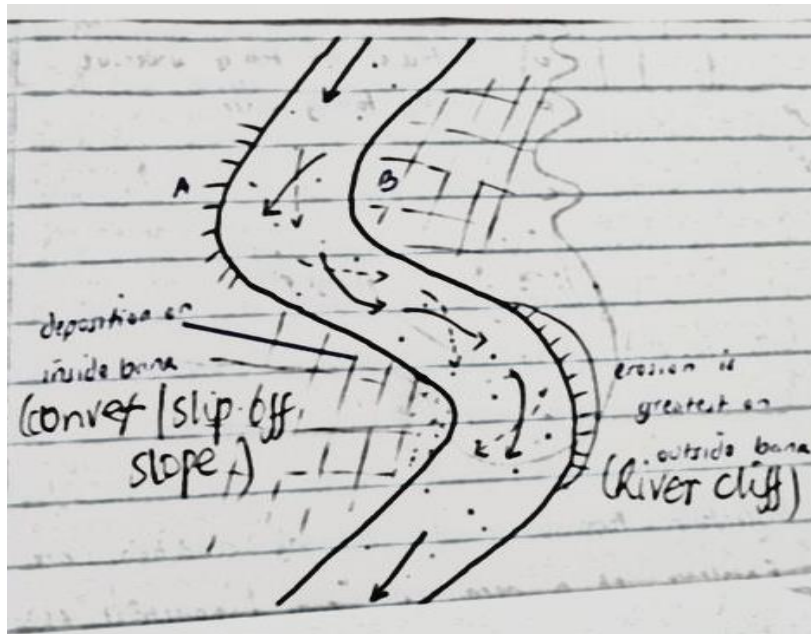 A
B
deposition on
inside bank
(convex | slip off
slope)
erosion is
greatest on
outside bank
(River cliff)